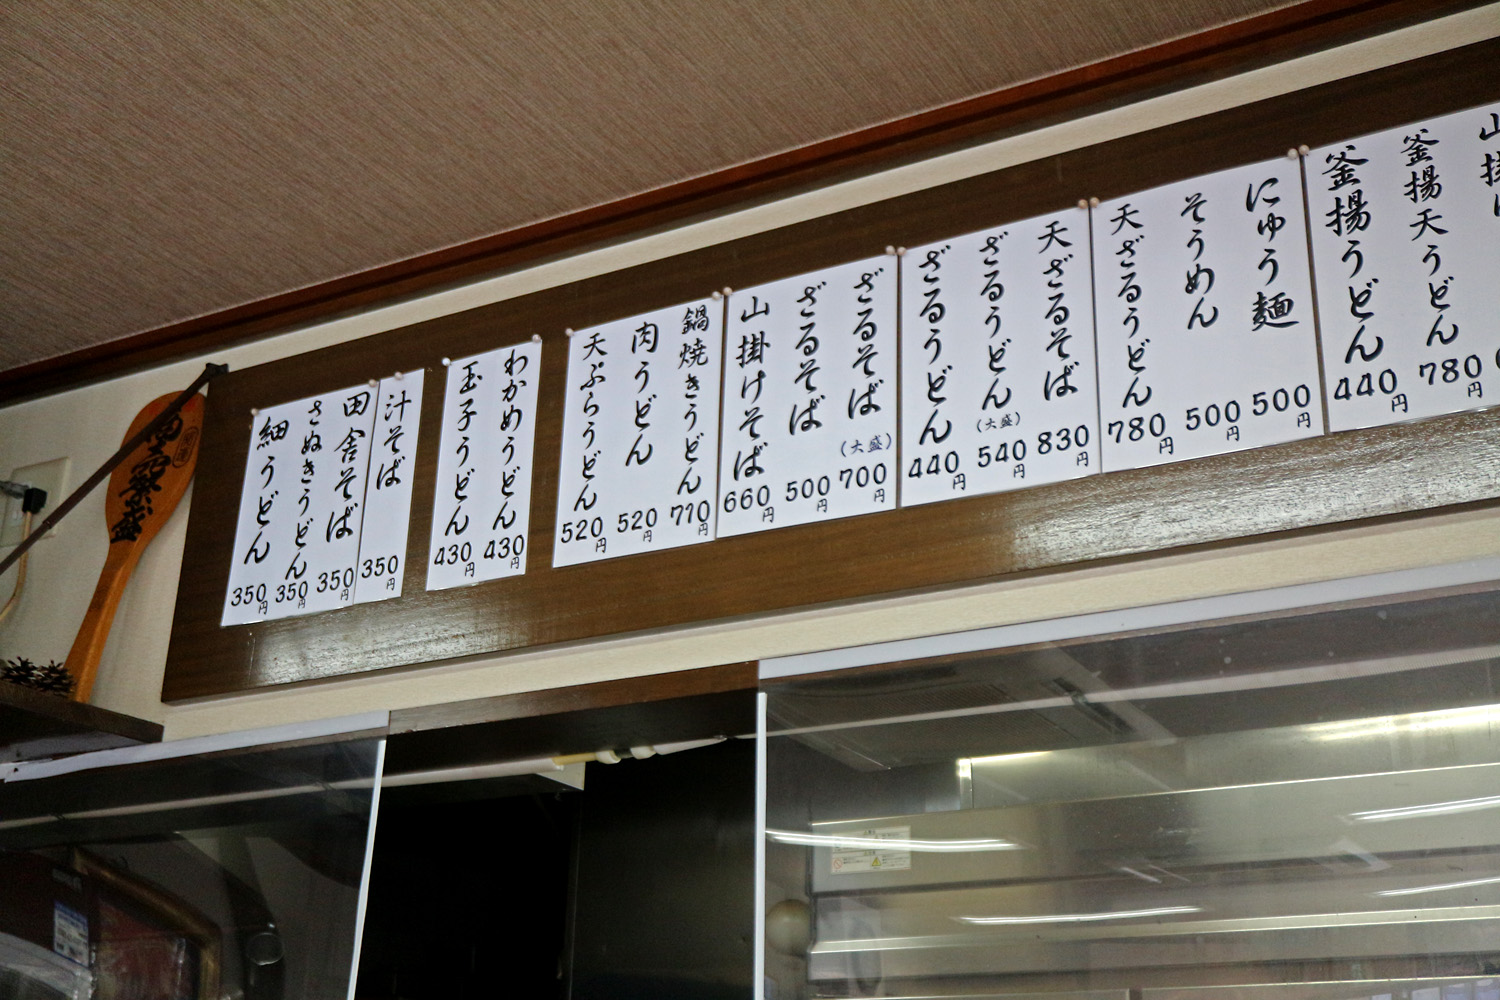 山掛け
釜揚天うどん 780円
釜揚うどん 440円
にゅう麺 500円
そうめん 500円
天ざるうどん 780円
天ざるそば 830円
ざるうどん(大盛) 540円
ざるうどん 440円
ざるそば(大盛) 700円
ざるそば 500円
山掛けそば 660円
鍋焼きうどん 710円
肉うどん 520円
天ぷらうどん 520円
わかめうどん 430円
玉子うどん 430円
汁そば 350円
田舎そば 350円
さぬきうどん 350円
細うどん 350円
商売繁盛